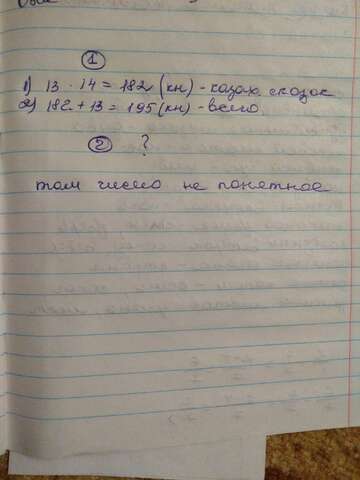 1
1) 13 · 14 = 182 (кн) - казах. сказок
2) 182 + 13 = 195 (кн) - всего.
2 ?
там число не понетное